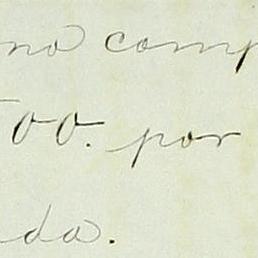 no comp
500. por
da.